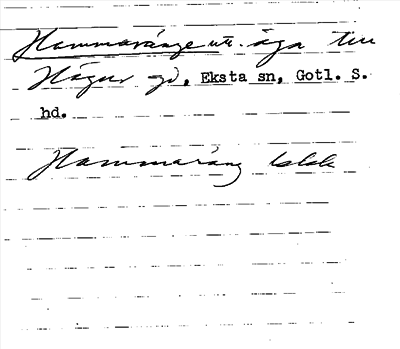 Hammaränge utt. äga till
Hägur gd, Eksta sn, Gotl. S.
hd.
Hammaräng